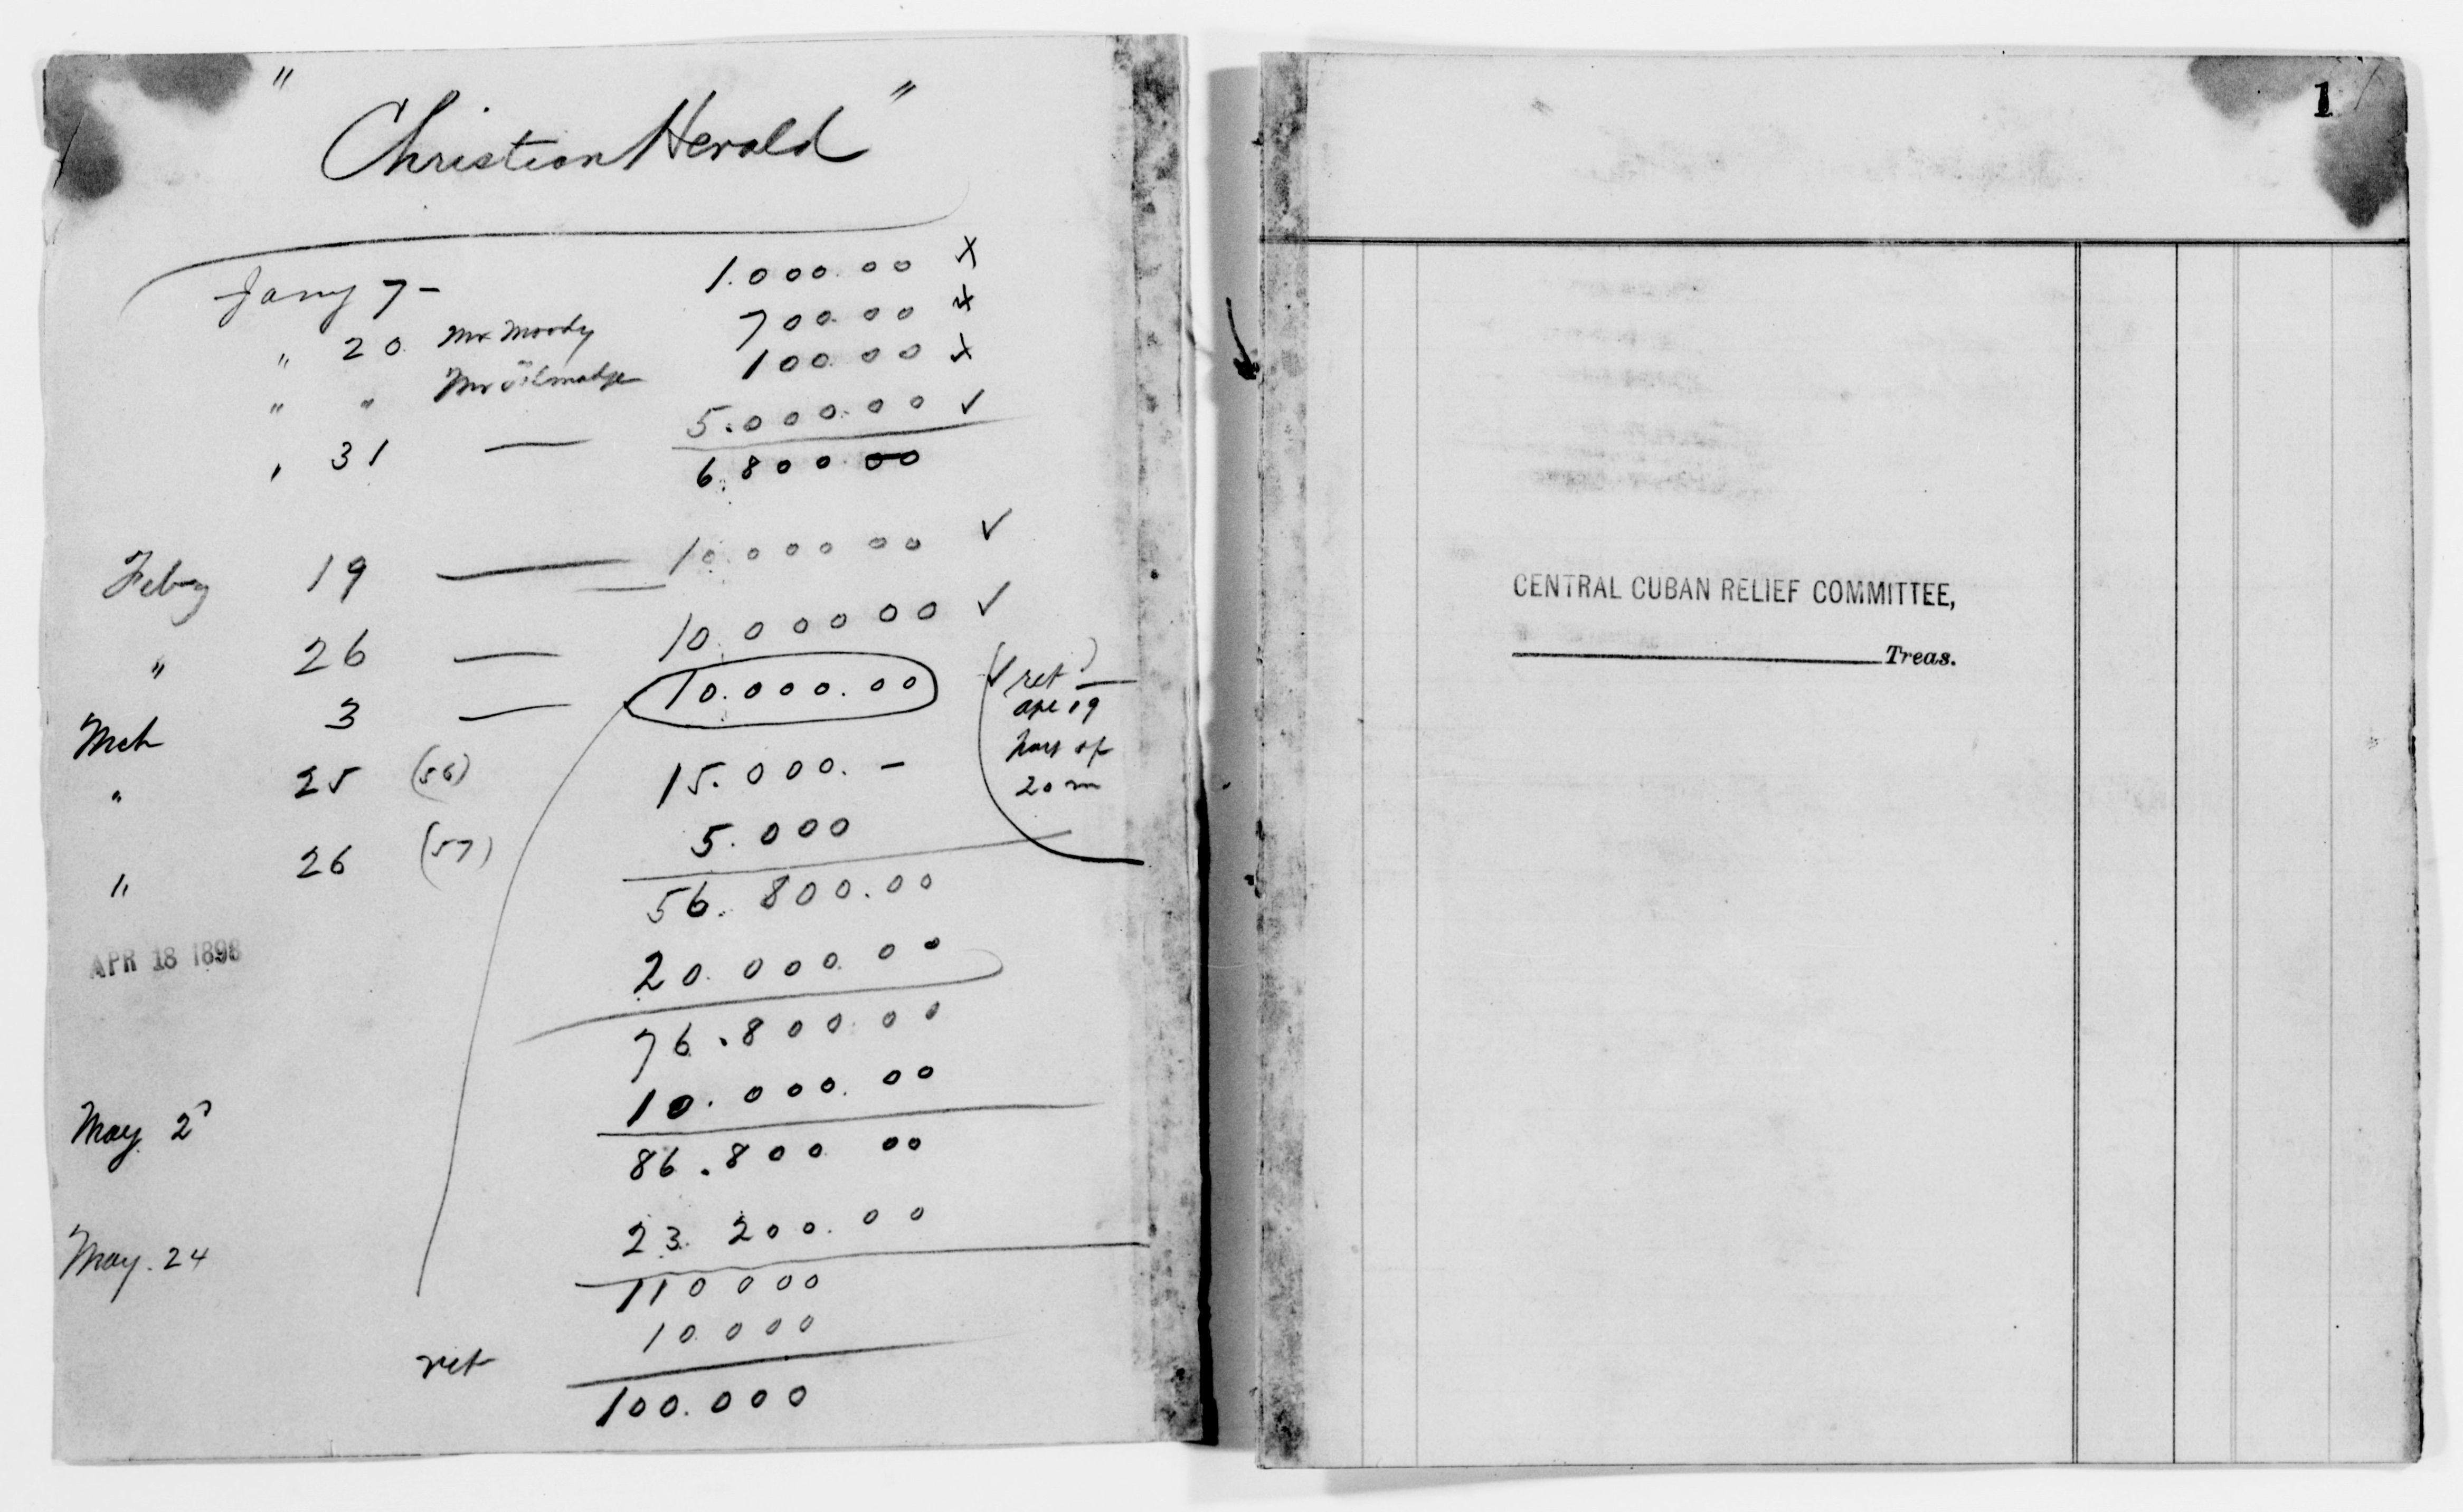 "Christian Herald"
Jany 7 – 1.000.00 x
" 20 Mr Moody 700.00 x
" " Mr 100.00 x
" 31 — 5.000.00 ✓
6.800.00
Feby 19 — 10.000.00 ✓
" 26 — 10.000.00 ✓
Mch 3 — 10.000.00 (✓ ret)
apl 19
part of
20 m
" 25 (56) 15.000. –
" 26 (57) 5.000
56.800.00
APR 18 1898 20.000.00
76.800.00
May 2 10.000.00
86.800 00
May. 24 23.200.00
110000
ret 10000
100.000
1
CENTRAL CUBAN RELIEF COMMITTEE,
Treas.